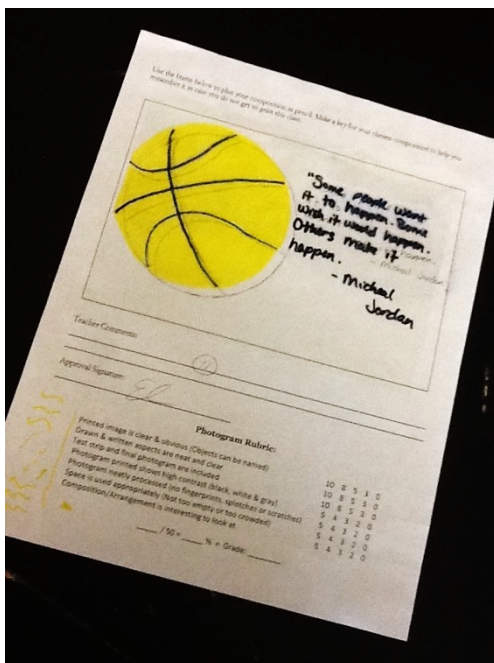 Use the frame below to plan your composition in pencil. Make a key for your chosen composition to help you
remember it in case you do not get to print this class.
"Some people want
it to happen. Some
wish it would happen.
Others make it
happen.
- Michael
Jordan
happen.
- Michael Jordan
Teacher Comments:
Approval Signature:
Photogram Rubric:
Printed image is clear & obvious (Objects can be named) 10 8 5 3 0
Drawn & written aspects are neat and clear 10 8 5 3 0
Test strip and final photogram are included 10 8 5 3 0
Photogram printed shows high contrast (black, white & gray) 5 4 3 2 0
Photogram neatly processed (no fingerprints, splotches or scratches) 5 4 3 2 0
Space is used appropriately (Not too empty or too crowded) 5 4 3 2 0
Composition/Arrangement is interesting to look at 5 4 3 2 0
_____ / 50 = _____ % = Grade: _______